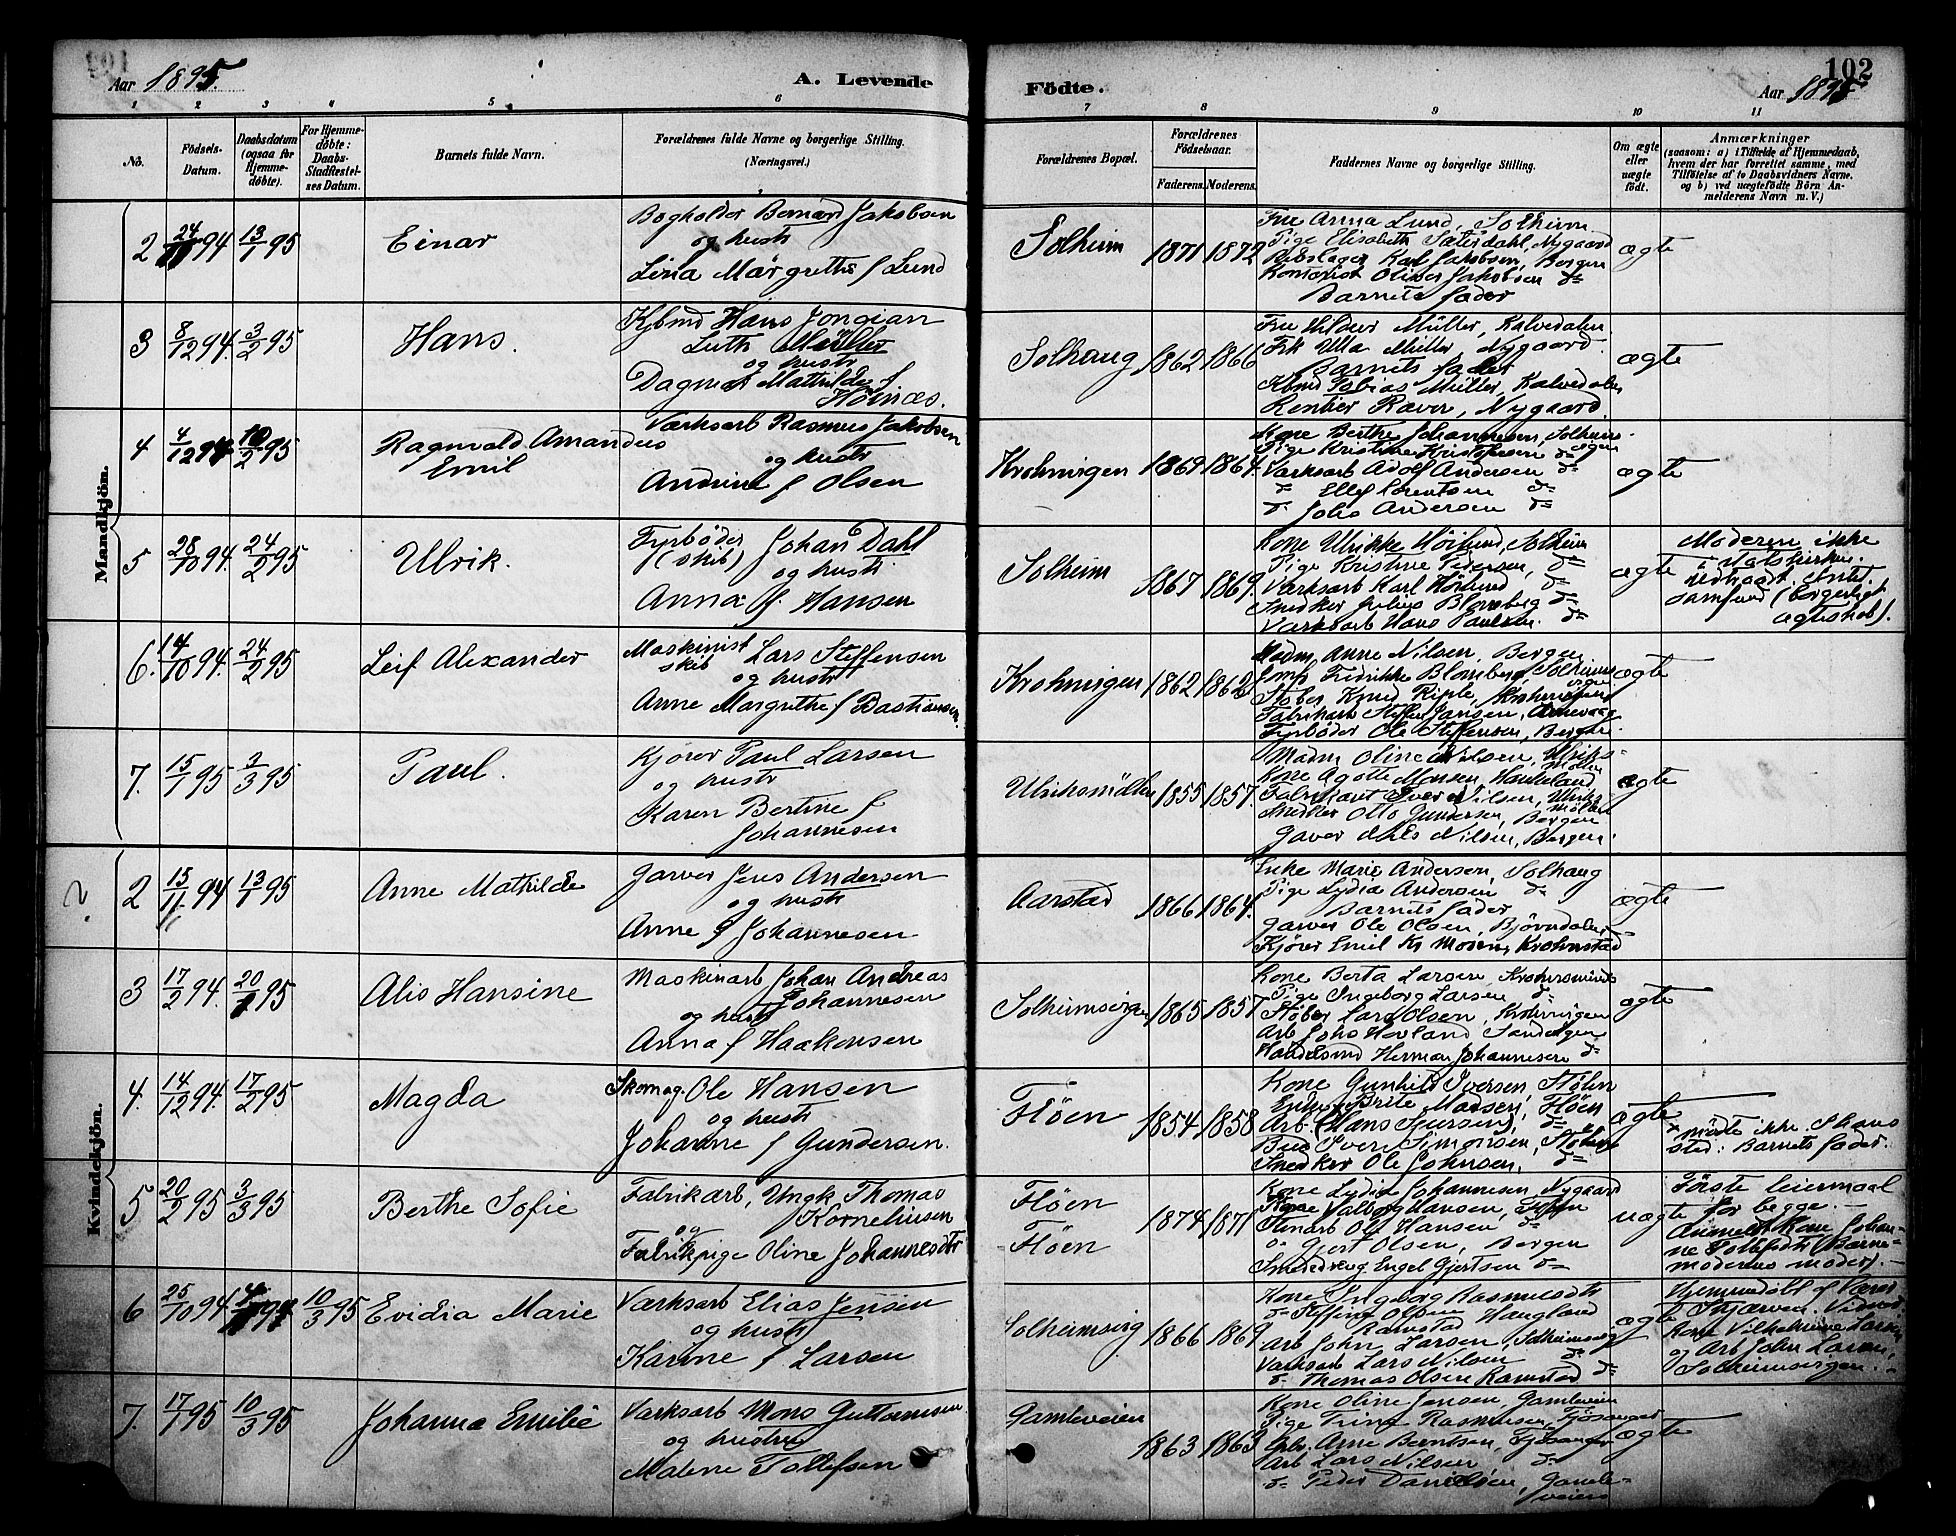 Aar 1895.
A. Levende
Födte.
102
Aar 1895
1 2 3 4 5 6
7 8 9 10 11
No.
Födsels-
Datum.
Daabsdatum
(ogsaa for
Hjemme-
døbte).
For Hjemme-
døbte:
Daabs-
Stadfæstel-
ses Datum.
Barnets fulde Navn.
Forældrenes fulde Navne og borgerlige Stilling.
(Næringsvei.)
Forældrenes Bopæl.
Forældrenes
Födselsaar.
Faderens. Moderens.
Faddernes Navne og borgerlige Stilling.
Om ægte
eller
uægte
født.
Anmærkninger
(saasom: a) i Tilfælde af Hjemmedaab,
hvem der har forrettet samme, med
Tilføielse af to Daabsvidners Navne.
og b) ved uægtefødte Börn An-
melderens Navn m.V.)
Mandkjön.
2 24/11 94 13/1 95 Einar
Bogholder Bernard Jakobsen
og hustr
Lina Margrethe f Lund
Solheim 1871 1872
Fru Anna Lund, Solheim
Pige Elisabeth Sæterdahl, Nygaard
Rebslager Karl Jakobsen, Bergen
Kontorist Oliver Jakobsen do
Barnets fader
ægte
3 8/12 94. 3/2 95 Hans.
Kjbmd Hans Jongian
Luth Müller
og hustr
Dagmar Mathilde f.
Hornæs.
Solhaug 1862 1866
Fru Hildur Müller, Kalvedalen.
Frk Ulla Müller Nygaard.
Barnets fader
Kbmd Tobias Müller, Kalvedalen
Rentier Raver, Nygaard.
ægte
4 4/12 94 10/2 95 Ragnvald Amandus
Emil
Værksarb Rasmus Jakobsen
og hustr
Andrine f Olsen
Krohnvigen 1869 1864.
Kone Berthe Johannesen, Solheims-
vigen
Pige Kristine Kristofersen do
Værksarb Adolf Andersen do
do Ellef Lorentsen do
do Johs Andersen do
ægte
5 28/10 94. 24/2 95 Ulrik.
Fyrbøder Johan Dahl
(skib)
og hustr.
Anna f. Hansen
Solheim 1867 1869.
Kone Ulrikke Höilund, Solheim
Pige Kristine Pedersen, do
Værksarb Karl Höilund do
Snedker Julius Blomberg do
Værksarb Hans Paulsen. do
ægte
Moderen ikke
i Statskirken.
(borgerligt
ægteskab).
6. 14/10 94. 24/2 95 Leif Alexander
Maskinist Lars Steffensen
skib
og hustr
Anne Margrethe f Bastiansen.
Krohnvigen 1862 1862
Madm Anne Nilsen, Bergen
Jomf Fredrikke Blomberg, Solheims-
vigen
Støber Knud Riple, Krohnvigen
Fabrikarb Steffen Jansen, Arnevaag
Fyrbøder Ole Steffensen, Bergen
ægte
7. 15/1 95 3/3 95 Paul.
Kjører Paul Larsen
og hustr
Karen Bertine f
Johannesen
Ulriksmöllen 1855 1857.
Madm Oline Nilsen, Ulriks-
möllen
Kone Agotte Monsen, Haukeland
Fabrikant Iver Nilsen, Ulriks-
möllen
Snedker Otto Gundersen, Bergen
Garver Nils Nilsen, Bergen.
ægte
Kvindekjön.
2. 2 15/11 94 13/1 95 Anne Mathilde
Garver Jens Andersen
og hustr
Anne f Johannesen
Aarstad 1866 1864.
Enke Marie Andersen, Solhaug
Pige Lydia Andersen do
Barnets fader
Garver Ole Olsen, Björndalen
Kjörer Emil Kr Monsen, Krohnstad
ægte
3 17/2 94. 20/1 95 Alis Hansine
Maskinarb Johan Andreas
Johannesen
og hustr
Anna f Haakensen
Solheimsvigen 1865 1857
Kone Berta Larsen, Krohnsminde
Pige Ingeborg Larsen do
Støber Lars Olsen, Krohnvigen
Arb Johs Hovland Sandvigen
Handelsmd Herman Johannesen do
ægte
4. 14/12 94. 17/2 95 Magda
Skomag. Ole Hansen
og hustr
Johanne f Gundersen.
Flöen 1854 1858
Kone Gunhild Iversen, Flöen
Enke Brite Madsen, Flöen
Arb. (Hans Iversen) do
Bud Iver Simonsen, Flöen
Snedker Ole Johnsen, do
ægte
x mödte ikke. I hans
sted: Barnets fader.
5 20/2 95 3/3 95 Berthe Sofie
Fabrikarb, Ungk Thomas
Kornelinsen
og
Fabrikpige Oline Johannesdtr
Flöen
Flöen
1874 1871
Kone Lydia Johannesen Nygaard
Kone Valborg Hansen, Flöen
Stenarb Olf Hansen do
do Gjert Olsen, Bergen
Smededreng Engel Gjertsen do
uægte
Förste leiermaal
for begge.
Anmelder kone Johan-
ne Tollefsdtr (Barne-
moderens moder).
6 25/10 94. 10/3 95 Evidia Marie
Værksarb Elias Jensen
og hustr
Karine f Larsen
Solheimsvig 1866 1869
Kone Ingeborg Rasmusdtr
do Steffine Olsen Haugland
Ramstad
Arb John Larsen, Solheimsvig
Værksarb Lars Nilsen do
do Thomas Olsen Ramstad do
ægte
Hjemmedöbt af
Kone Vilhelmine Larsen
og Arb John Larsen,
Solheimsvigen.
7. 17/1 95 10/3 95 Johanna Emilie
Værksarb Mons Guttormsen
og hustru
Malene Tollefsen
Gamleveien 1863 1863
Kone Oline Jensen, Gamleveien
Pige Trine Rasmusen, Fjösanger
Arb. Arne Berntsen, Fjösanger
Arb Lars Nilsen do
do Peder Danielsen, Gamle-
veien
ægte